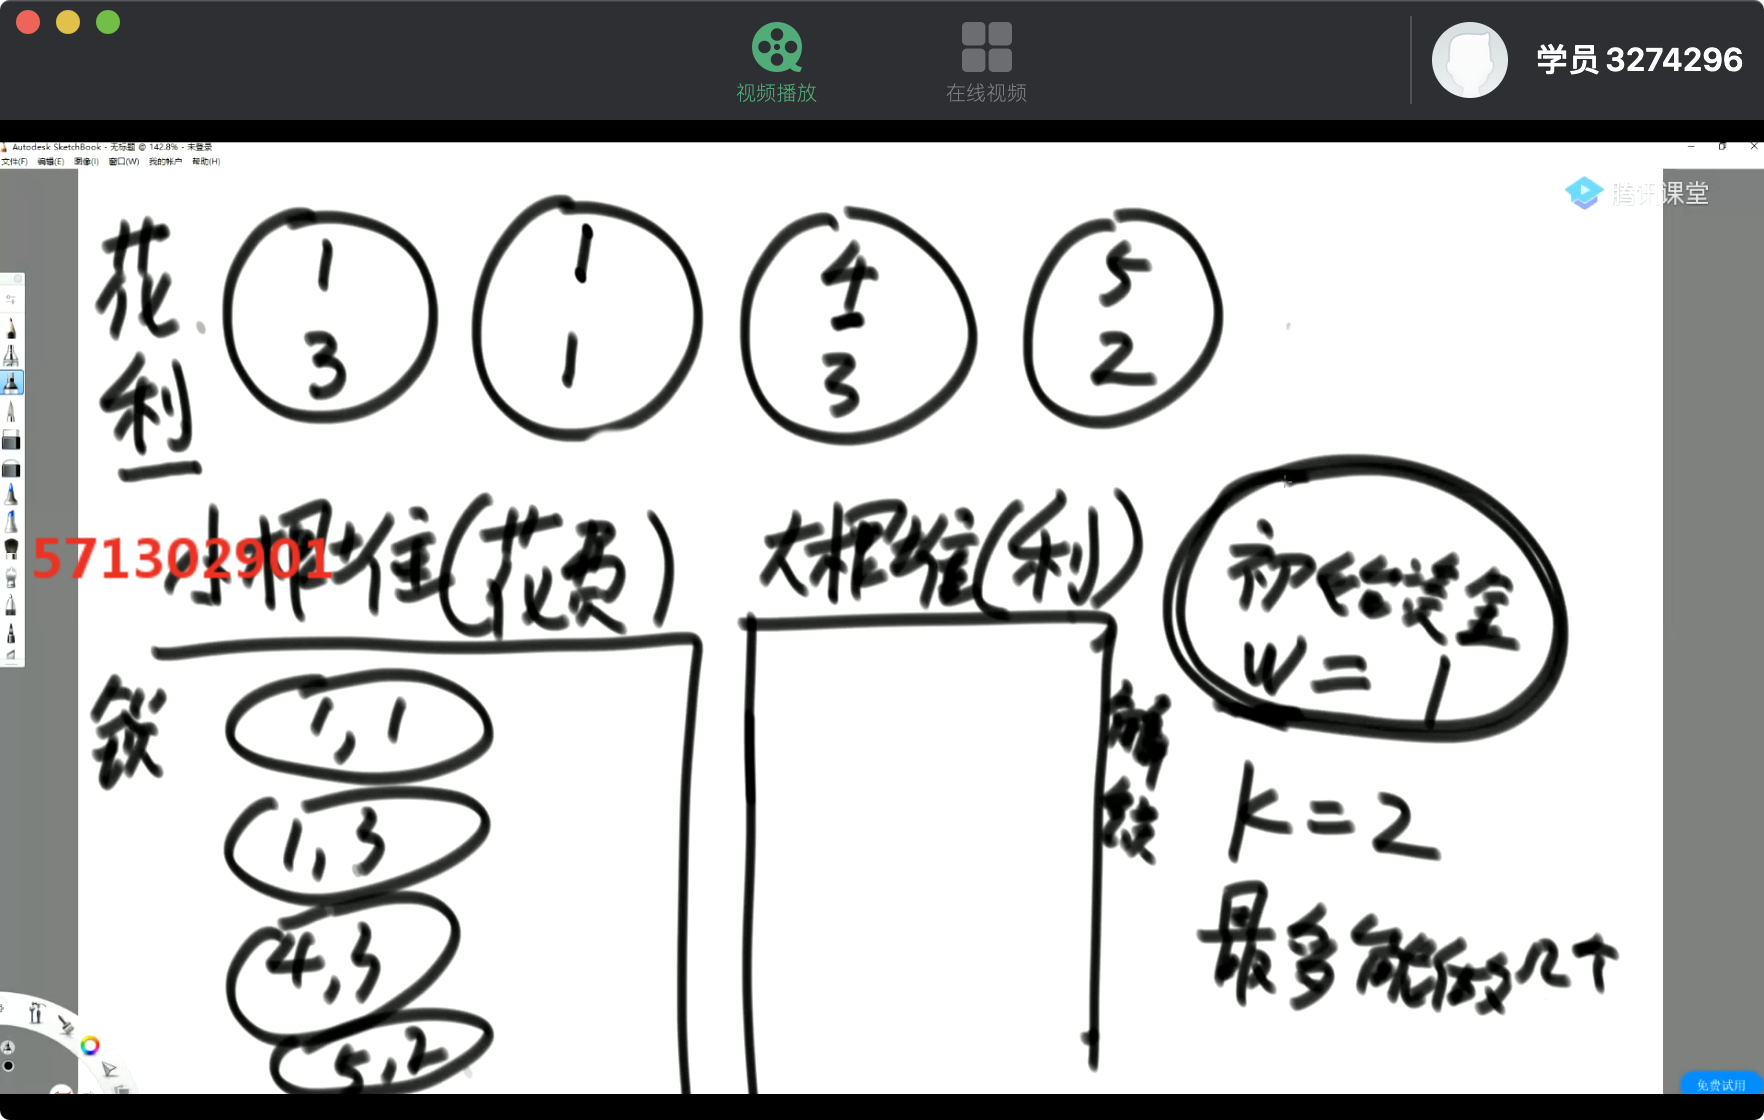 视频播放
在线视频
学员 3274296
Autodesk SketchBook - 无标题 @ 142.8% - 未登录
文件(F) 编辑(E) 图像(I) 窗口(W) 我的帐户 帮助(H)
腾讯课堂
花 1 1 4 5
利 3 1 3 2
571302901
小根堆(花费) 大根堆(利)
初始资金
W = 1
锁
解
锁
1, 1
1, 3
4, 3
5, 2
K = 2
最多能做几个
免费试用